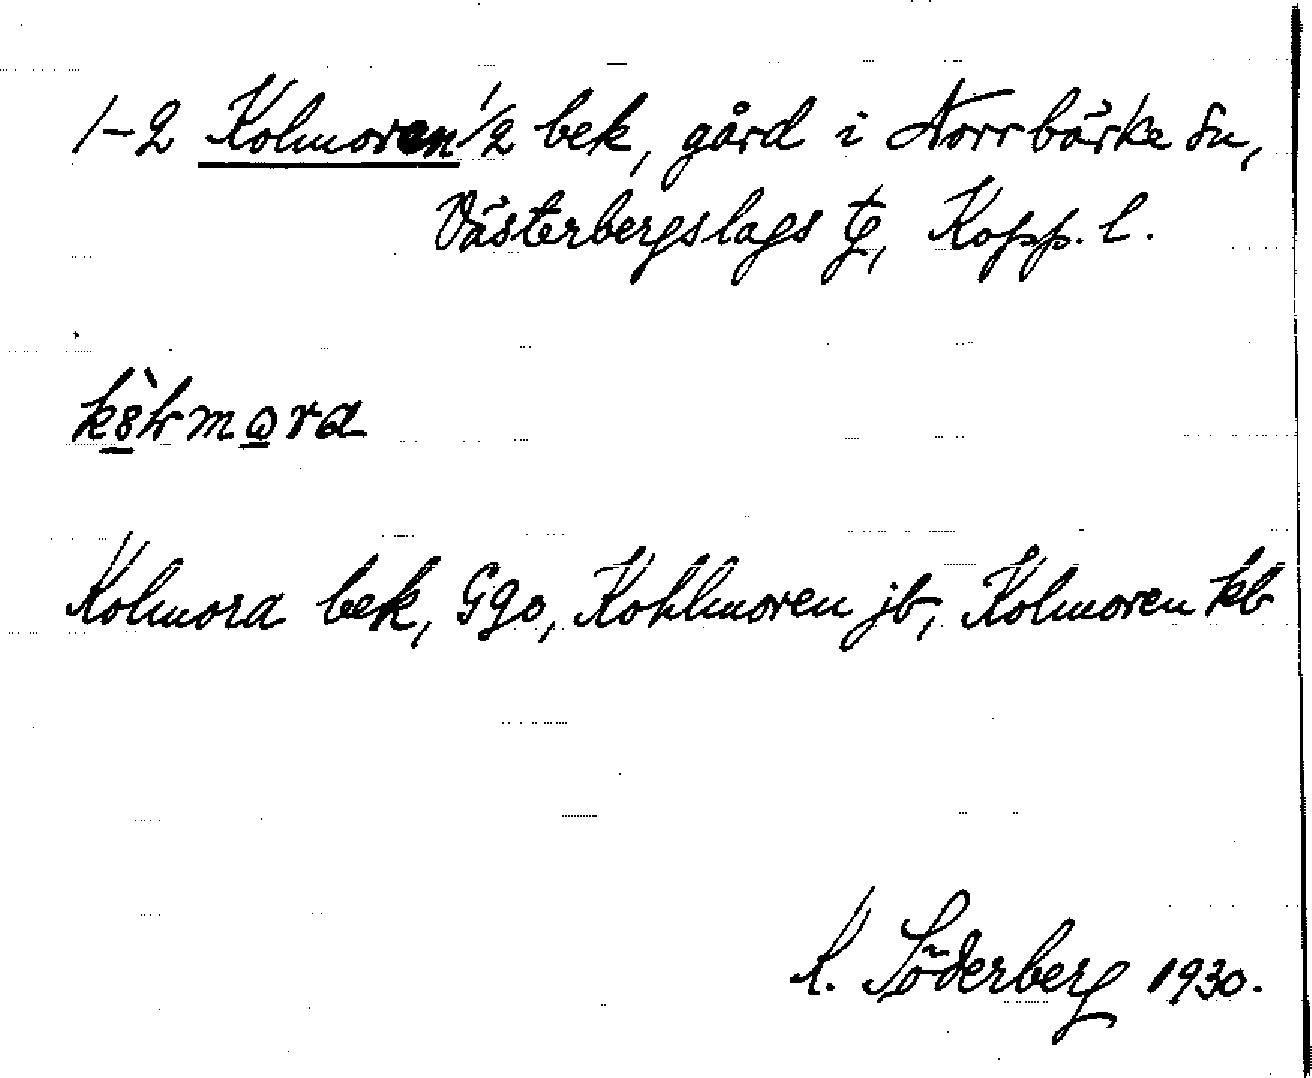 1-2 Kolmoren 1/2 bek, gård i Norrbärke sn,
Västerbergslags tg, Kopp. l.
Kolmora bek, Ggo, Kohlmoren jb, Kolmoren kb
K. Söderberg 1930.